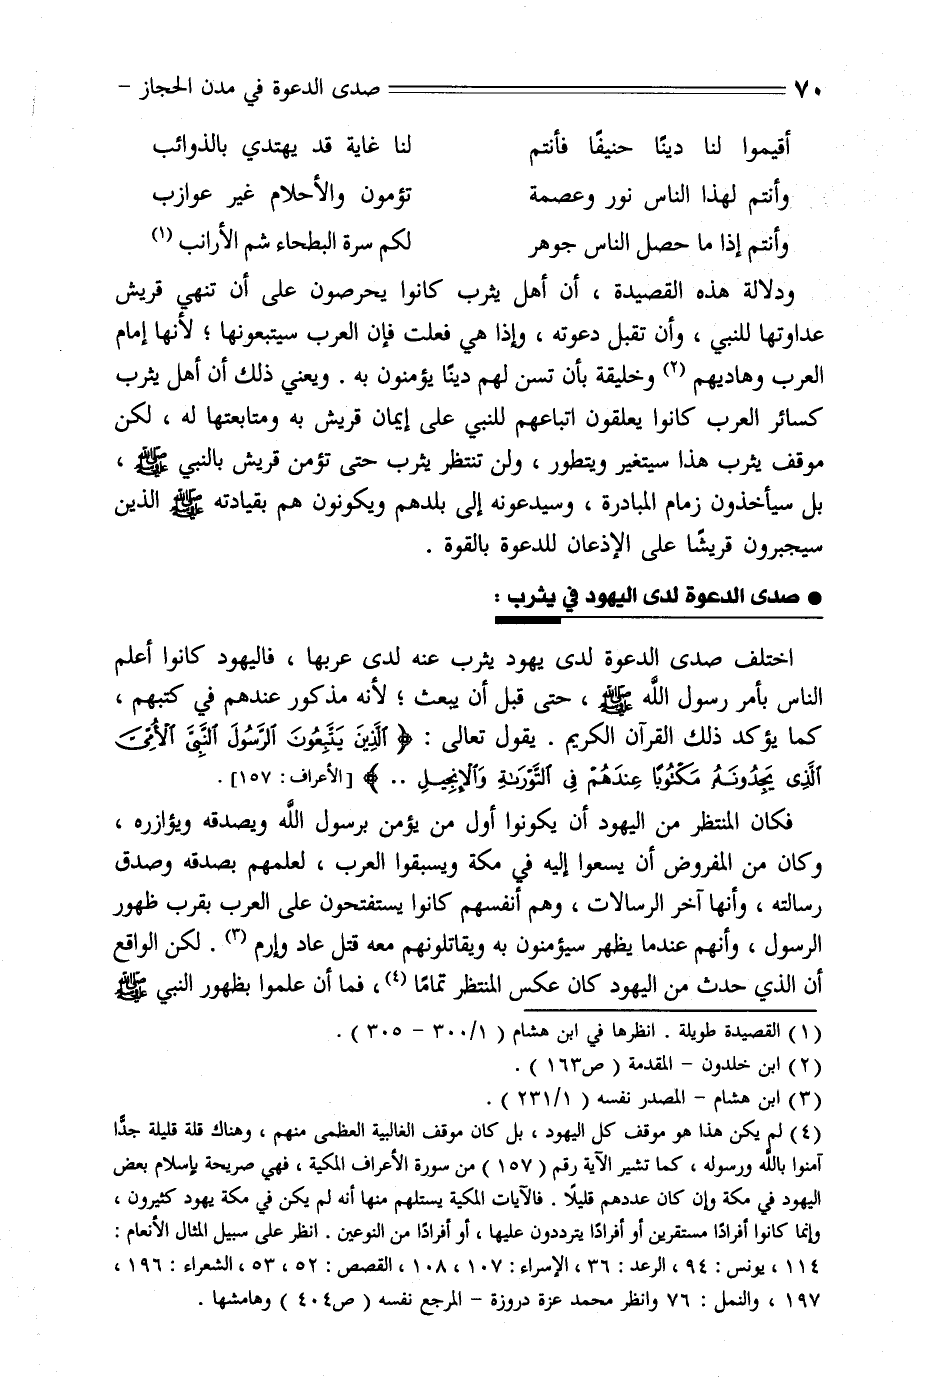 ٧٠ صدى الدعوة في مدن الحجاز –
أقيموا لنا دينًا حنيفًا فأنتم لنا غاية قد يهتدي بالذوائب
وأنتم لهذا الناس نور وعصمة تؤمون والأحلام غير عوازب
وأنتم إذا ما حصل الناس جوهر لكم سرة البطحاء شم الأرانب (١)
ودلالة هذه القصيدة ، أن أهل يثرب كانوا يحرصون على أن تنهي قريش
عداوتها للنبي ، وأن تقبل دعوته ، وإذا هي فعلت فإن العرب سيتبعونها ؛ لأنها إمام
العرب وهاديهم (٢) وخليقة بأن تسن لهم دينًا يؤمنون به . ويعني ذلك أن أهل يثرب
كسائر العرب كانوا يعلقون اتباعهم للنبي على إيمان قريش به ومتابعتها له ، لكن
موقف يثرب هذا سيتغير ويتطور ، ولن تنتظر يثرب حتى تؤمن قريش بالنبي ﷺ ،
بل سيأخذون زمام المبادرة ، وسيدعونه إلى بلدهم ويكونون هم بقيادته ﷺ الذين
سيجبرون قريشًا على الإذعان للدعوة بالقوة .
● صدى الدعوة لدى اليهود في يثرب :
اختلف صدى الدعوة لدى يهود يثرب عنه لدى عربها ، فاليهود كانوا أعلم
الناس بأمر رسول اللَّه ﷺ ، حتى قبل أن يبعث ؛ لأنه مذكور عندهم في كتبهم ،
كما يؤكد ذلك القرآن الكريم . يقول تعالى : ﴿ ٱلَّذِينَ يَتَّبِعُونَ ٱلرَّسُولَ ٱلنَّبِيَّ ٱلْأُمِّيَّ
ٱلَّذِى يَجِدُونَهُۥ مَكْتُوبًا عِندَهُمْ فِى ٱلتَّوْرَىٰةِ وَٱلْإِنجِيلِ .. ﴾ [الأعراف: ١٥٧] .
فكان المنتظر من اليهود أن يكونوا أول من يؤمن برسول اللَّه ويصدقه ويؤازره ،
وكان من المفروض أن يسعوا إليه في مكة ويسبقوا العرب ، لعلمهم بصدقه وصدق
رسالته ، وأنها آخر الرسالات ، وهم أنفسهم كانوا يستفتحون على العرب بقرب ظهور
الرسول ، وأنهم عندما يظهر سيؤمنون به ويقاتلونهم معه قتل عاد وإرم (٣) . لكن الواقع
أن الذي حدث من اليهود كان عكس المنتظر تمامًا (٤) ، فما أن علموا بظهور النبي ﷺ
(١) القصيدة طويلة . انظرها في ابن هشام ( ٣٠٠/١ – ٣٠٥ ) .
(٢) ابن خلدون – المقدمة ( ص١٦٣ ) .
(٣) ابن هشام – المصدر نفسه ( ٢٣١/١ ) .
(٤) لم يكن هذا هو موقف كل اليهود ، بل كان موقف الغالبية العظمى منهم ، وهناك قلة قليلة جدًّا
آمنوا باللَّه ورسوله ، كما تشير الآية رقم ( ١٥٧ ) من سورة الأعراف المكية ، فهي صريحة بإسلام بعض
اليهود في مكة وإن كان عددهم قليلًا . فالآيات المكية يستلهم منها أنه لم يكن في مكة يهود كثيرون ،
وإنما كانوا أفرادًا مستقرين أو أفرادًا يترددون عليها ، أو أفرادًا من النوعين . انظر على سبيل المثال الأنعام :
١١٤ ، يونس : ٩٤ ، الرعد : ٣٦ ، الإسراء : ١٠٧ ، ١٠٨ ، القصص : ٥٢ ، ٥٣ ، الشعراء : ١٩٦ ،
١٩٧ ، والنمل : ٧٦ وانظر محمد عزة دروزة – المرجع نفسه ( ص٤٠٤ ) وهامشها .